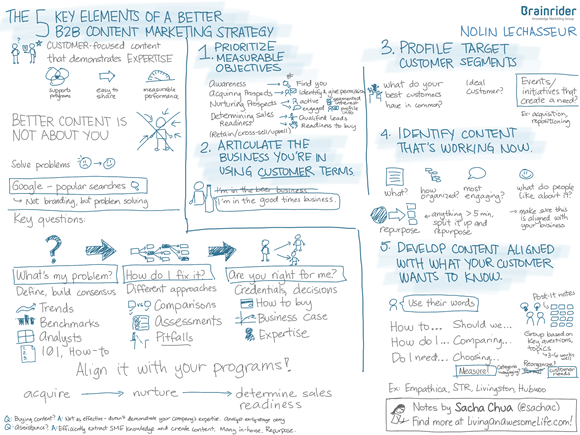 THE 5 KEY ELEMENTS OF A BETTER
B2B CONTENT MARKETING STRATEGY
Brainrider
Knowledge Marketing Group
NOLIN LECHASSEUR
CUSTOMER-FOCUSED content
that demonstrates EXPERTISE
supports
programs
easy to
share
measurable
performance
BETTER CONTENT IS
NOT ABOUT YOU
Solve problems
Google - popular searches
Not branding, but problem solving
1. PRIORITIZE
MEASURABLE
OBJECTIVES
Awareness
Find you
Acquiring Prospects
Identify & give permission
Nurturing Prospects
active
engaged
segmented
interest
profile
info
Determining Sales
Readiness
Qualified leads
Readiness to buy
(Retain/cross-sell/upsell)
2. ARTICULATE THE
BUSINESS YOU'RE IN
USING CUSTOMER TERMS.
I'm in the beer business
I'm in the good times business.
3. PROFILE TARGET
CUSTOMER SEGMENTS
what do your
best customers
have in common?
Ideal
customer?
Events/
initiatives that
create a need?
Ex: acquisition,
repositioning
4. IDENTIFY CONTENT
THAT'S WORKING NOW.
what?
how
organized?
most
engaging?
what do people
like about it?
repurpose
anything > 5 min,
split it up and
repurpose
make sure this
is aligned with
your business
5. DEVELOP CONTENT ALIGNED
WITH WHAT YOUR CUSTOMER
WANTS TO KNOW.
Use their words
Post-it notes
How to... Should we...
How do I... Comparing...
Do I need... Choosing...
Group based on
key questions,
topics
4-6 works
well
Measure!
Reorganize?
customer needs
Ex: Empathica, STR, Livingston, Hubwoo
Key questions:
What's my problem?
How do I fix it?
Are you right for me?
Define, build consensus
Different approaches
Credentials, decisions
Trends
Comparisons
How to buy
Benchmarks
Assessments
Business Case
Analysts
Pitfalls
Expertise
101, How-to
Align it with your programs!
acquire
nurture
determine sales
readiness
Q: Buying content? A: Not as effective - doesn't demonstrate your company's expertise.
Q: Assistance? A: Efficiently extract SME knowledge and create content. Many in-house. Repurpose.
Notes by Sacha Chua (@sachac)
Find more at LivingAnAwesomeLife.com!